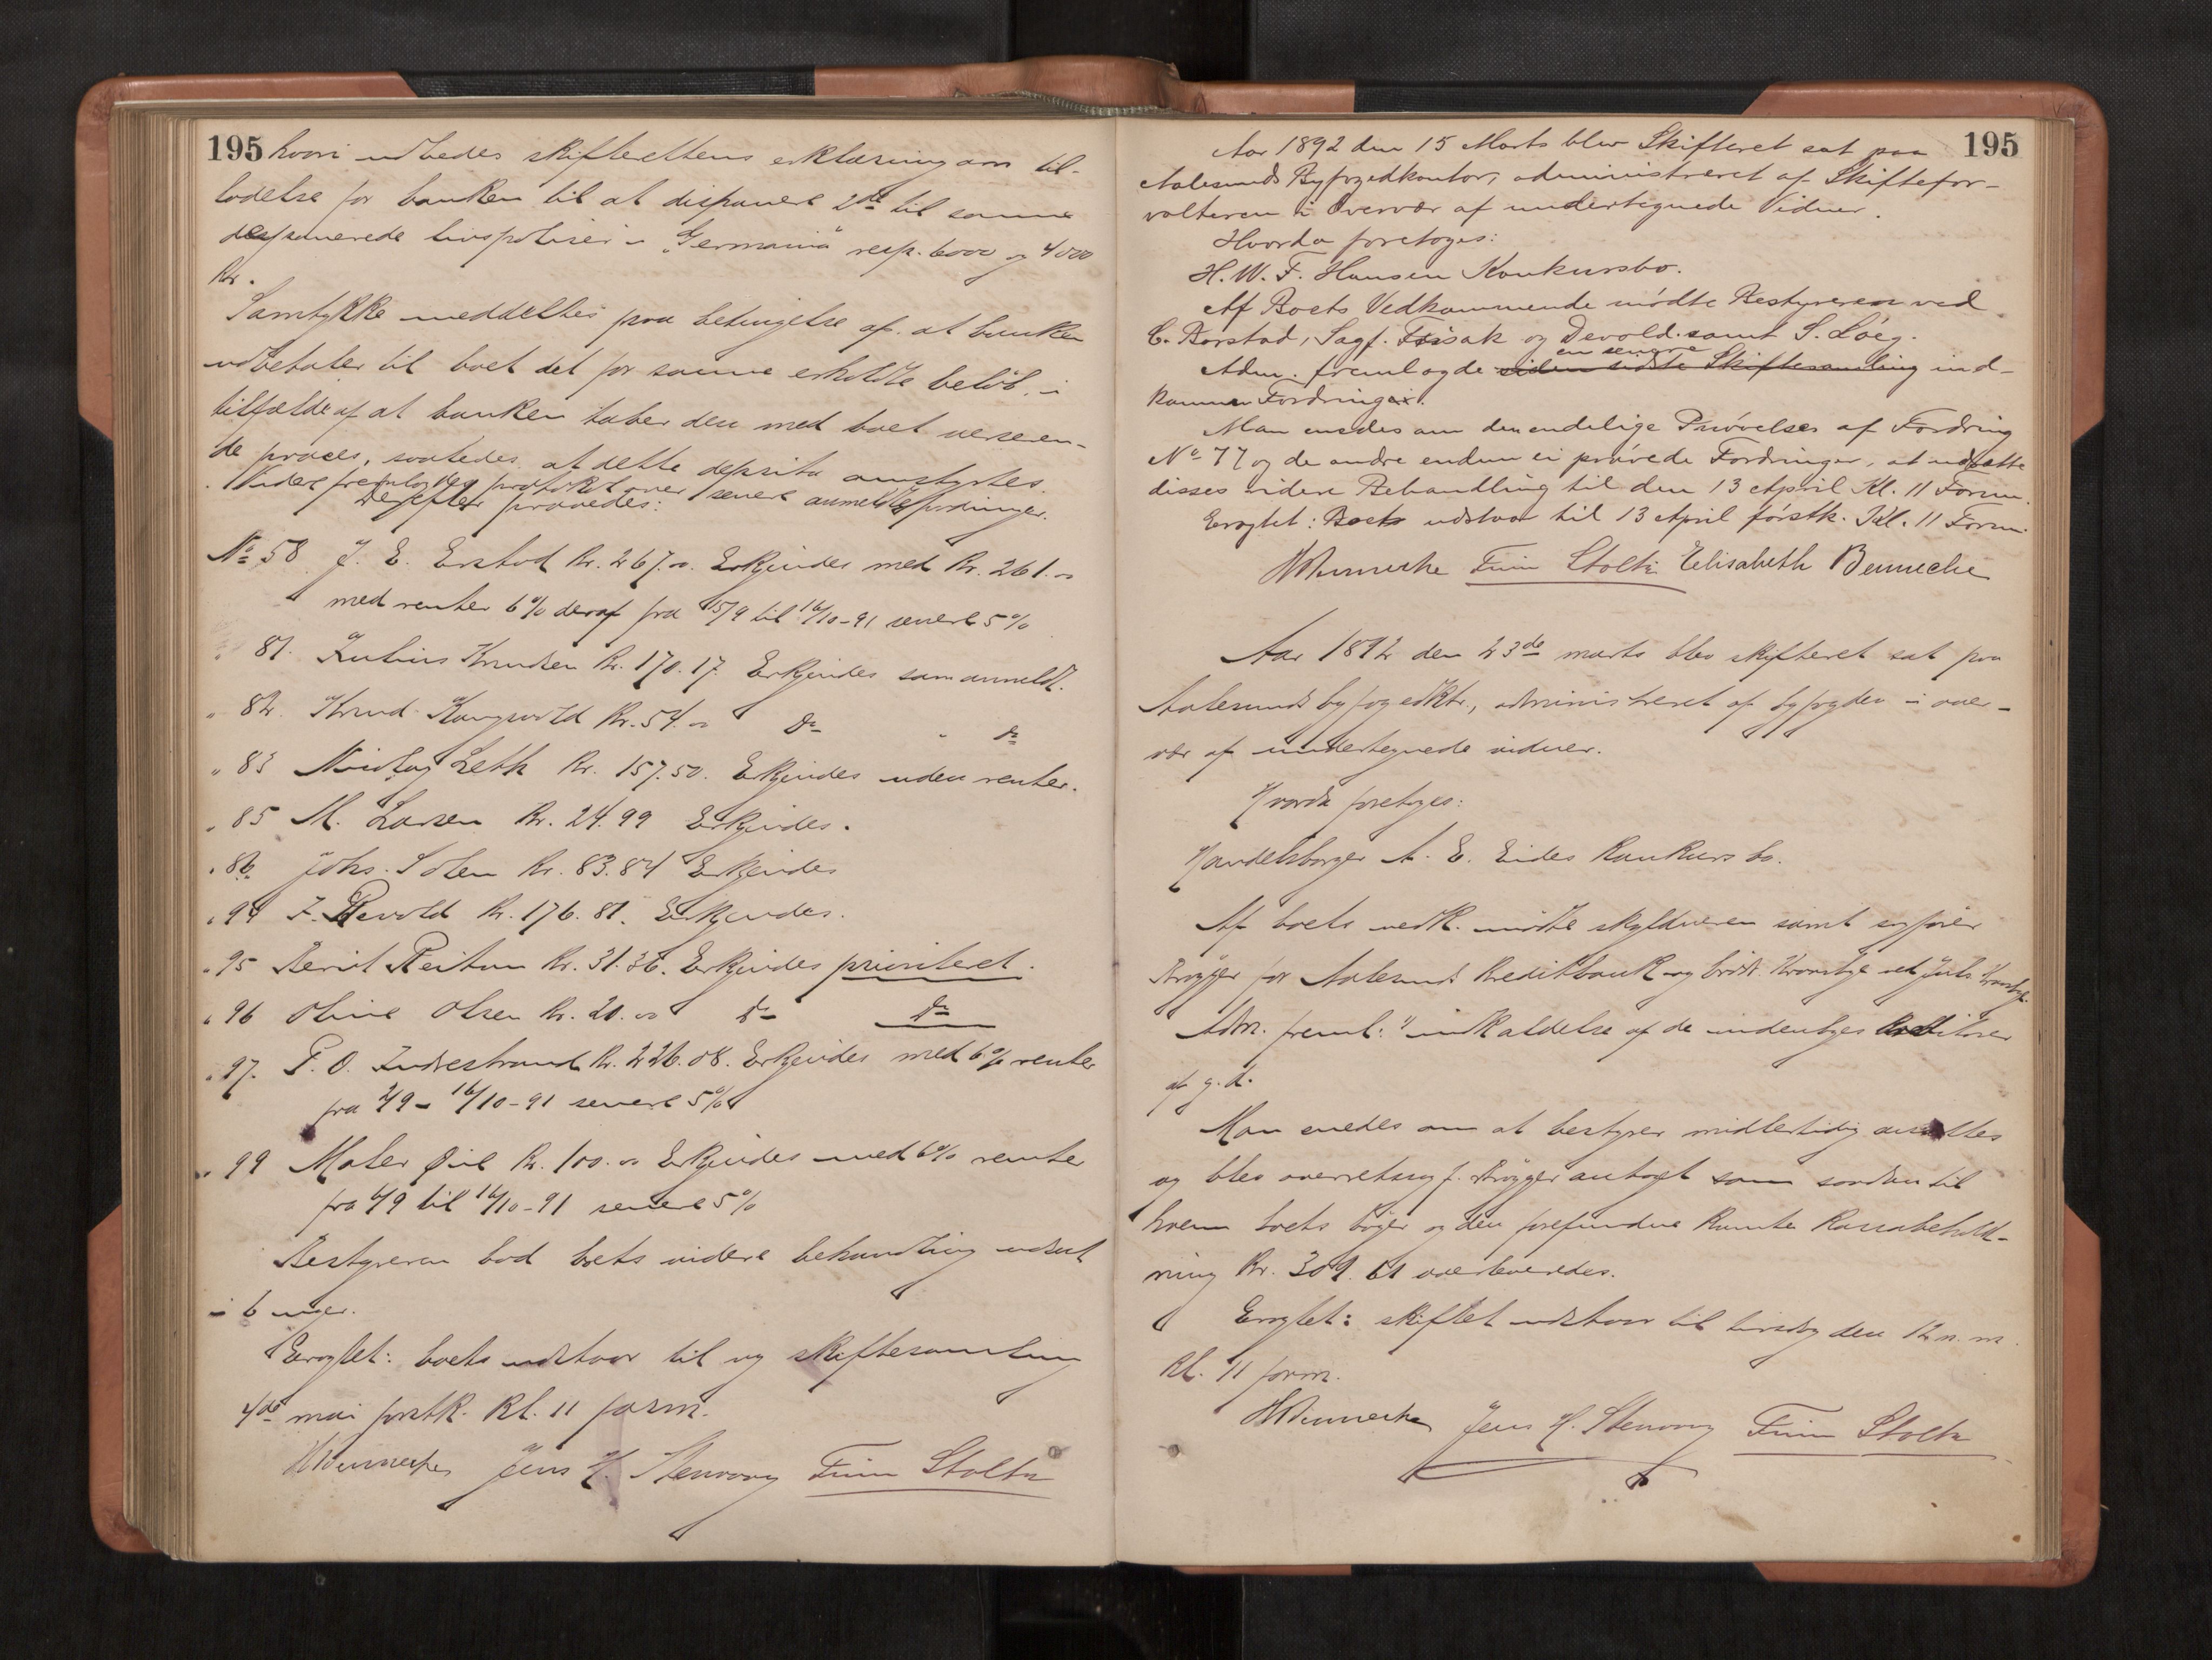 195 hvori udbedes skifterettens erklæring om til-
ladelse for banken til at disponere 2de til samme
deponerede livspoliser i "Germania" resp. 6000 og 4000
Kr.
Samtykke meddeltes paa betingelse af at banken
udbetaler til boet det for samme erholdte beløb, i
tilfælde af at banken taber den med boet verseren-
de proces, saaledes at dette deposita
Videre fremlagdes protokol over senere anmeldte fordringer.
Derefter prøvedes:
No 58 J. E. Erstad Kr. 267.00. Erkjendes med Kr. 261.00
med renter 6% deraf fra 15/9 til 16/10-91 senere 5%
" 81. Julius Knudsen Kr. 170.17. Erkjendes som anmeldt.
" 82. Knud Kongsvold Kr. 54.00 Do " Do
" 83 Nicolay Leth Kr. 157.50. Erkjendes uden renter.
" 85 M. Larsen Kr. 24.99 Erkjendes.
" 86. Johs. Solem Kr. 83.84 Erkjendes
" 94 F. Devold Kr. 176.81. Erkjendes.
" 95 Berit Reitan Kr. 31.36. Erkjendes prioriteret.
" 96 Oline Olsen Kr. 20.00 Do Do
" 97. P. O. Indrestrand Kr. 226.08. Erkjendes med 6% renter
fra 2/9 - 16/10-91 senere 5%
" 99 Maler Øie Kr. 100.00 Erkjendes med 6% renter
fra 4/9 til 16/10-91 senere 5%
Bestyreren bad boets videre behandling udsat
i 6 uger.
Eragtet: boets udstaar til ny skiftesamling
4de mai førstk. Kl. 11 form.
HBennecke Jens H. Stenvaag Finn Stoltz
195
Aar 1892 den 15 Marts blev Skifteret sat paa
Aalesunds Byfogedkontor, administreret af Skiftefor-
valteren i Overvær af undertegnede Vidner.
Hvorda foretoges:
H. W. F. Hansen Konkursbo.
Af Boets Vedkommende mødte Bestyreren ved
C. Borstad, Sagf. Frisak og Devold samt S. Løeg.
en senere
Adm. fremlagde siden sidste Skiftesamling ind-
kommen Fordring.
Man enedes om den endelige Prøvelse af Fordring
No 77 og de andre endnu ei prøvede Fordringer, at udsætte
disses videre Behandling til den 13 April Kl. 11 Form.
Eragtet: Boets udstaar til 13 April førstk. Kl. 11 Form.
HBennecke Finn Stoltz Elisabeth Bennecke
Aar 1892 den 23de marts blev skifteret sat paa
Aalesunds byfogedktr, administreret af byfogden i over-
vær af undertegnede vidner.
Hvorda foretoges:
Handelsborger A. E. Eides Konkursbo.
Af boets vedk. mødte skyldneren samt sagfører
Brøgger for Aalesunds Kreditbank og brødr. Kronstye ved Juls
Adm. freml: 1) indkaldelse af de indenbyes kreditorer
af g.d.
Man enedes om at bestyrer midlertidig ansættes
og blev overretssagf. Brøgger antaget som saadan til
hvem boets bøger og den forefundne kontante kassabehold-
ning Kr. 309.61 overleveredes.
Eragtet: skiftet udstaar til tirsdag den 12 n. m.
Kl. 11 form.
HBennecke Jens H. Stenvaag Finn Stoltz